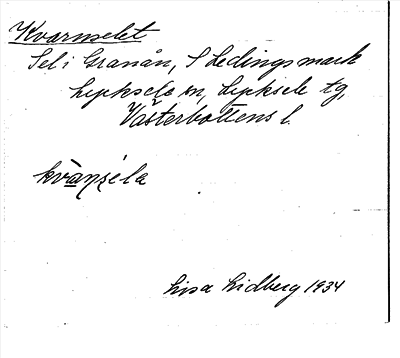 Kvarnselet
Sel i Granån, S Ledingsmark
Lycksele sn, Lycksele tg,
Västerbottens l.
kvànsela
Lisa Lidberg 1934